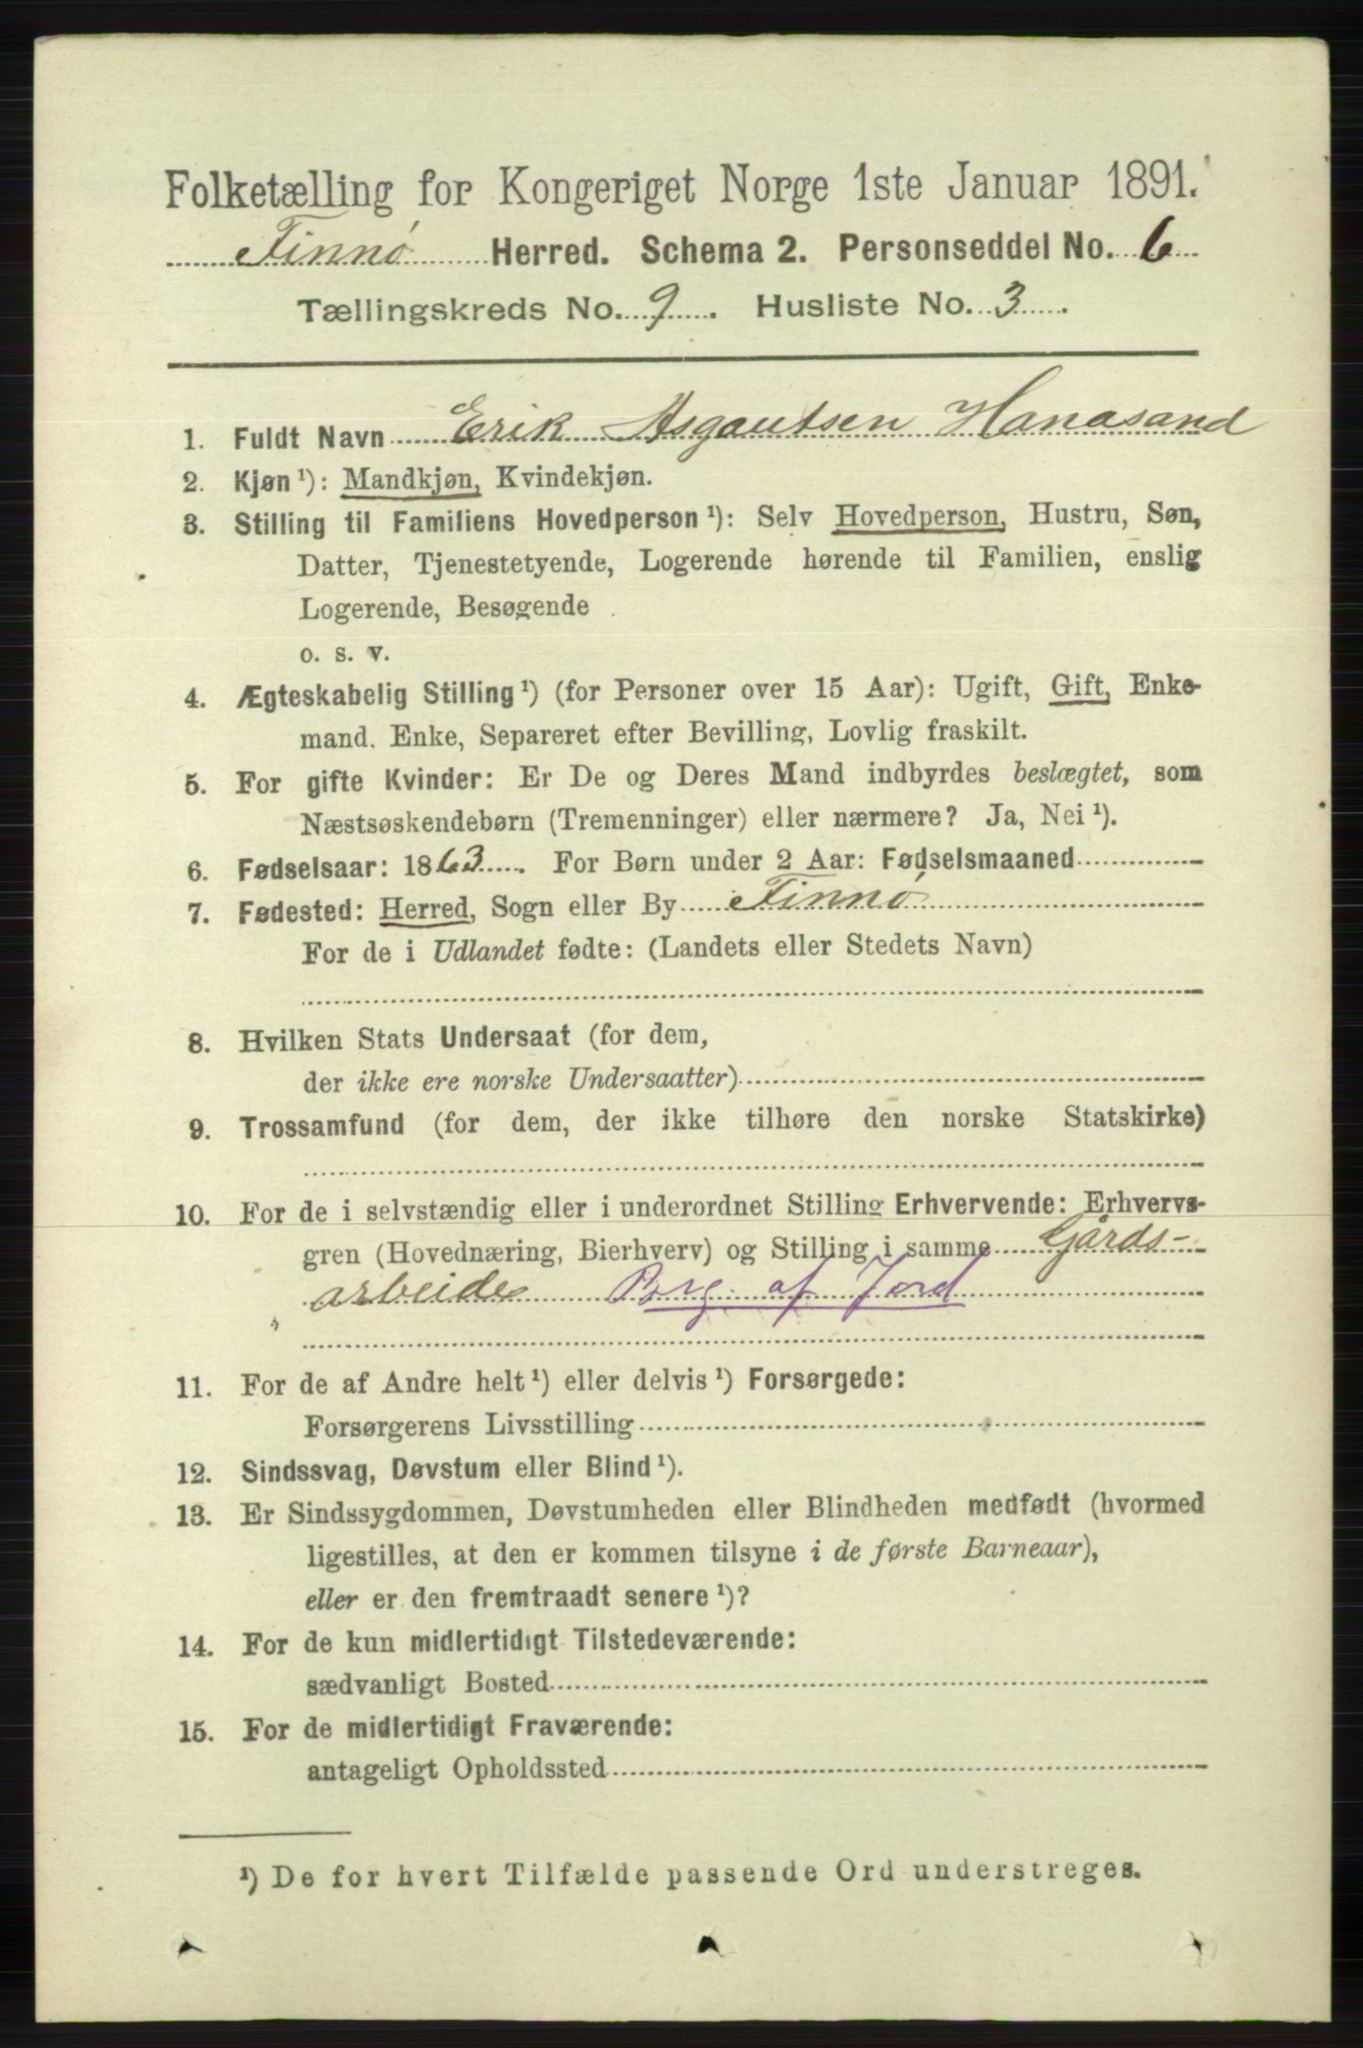 Folketælling for Kongeriget Norge 1ste Januar 1891.
Finnø Herred. Schema 2. Personseddel No. 6
Tællingskreds No. 9. Husliste No. 3.
1. Fuldt Navn Erik Asgautsen Hanasand
2. Kjøn ¹): Mandkjøn, Kvindekjøn.
3. Stilling til Familiens Hovedperson ¹): Selv Hovedperson, Hustru, Søn,
Datter, Tjenestetyende, Logerende hørende til Familien, enslig
Logerende, Besøgende
o. s. v.
4. Ægteskabelig Stilling ¹) (for Personer over 15 Aar): Ugift, Gift, Enke-
mand. Enke, Separeret efter Bevilling, Lovlig fraskilt.
5. For gifte Kvinder: Er De og Deres Mand indbyrdes beslægtet, som
Næstsøskendebørn (Tremenninger) eller nærmere? Ja, Nei ¹).
6. Fødselsaar: 1863. For Børn under 2 Aar: Fødselsmaaned
7. Fødested: Herred, Sogn eller By Finnø
For de i Udlandet fødte: (Landets eller Stedets Navn)
8. Hvilken Stats Undersaat (for dem,
der ikke ere norske Undersaatter)
9. Trossamfund (for dem, der ikke tilhøre den norske Statskirke)
10. For de i selvstændig eller i underordnet Stilling Erhvervende: Erhvervs-
gren (Hovednæring, Bierhverv) og Stilling i samme Gårds-
arbeide Brg. af Jord
11. For de af Andre helt ¹) eller delvis ¹) Forsørgede:
Forsørgerens Livsstilling
12. Sindssvag, Døvstum eller Blind ¹).
13. Er Sindssygdommen, Døvstumheden eller Blindheden medfødt (hvormed
ligestilles, at den er kommen tilsyne i de første Barneaar),
eller er den fremtraadt senere ¹)?
14. For de kun midlertidigt Tilstedeværende:
sædvanligt Bosted
15. For de midlertidigt Fraværende:
antageligt Opholdssted
¹) De for hvert Tilfælde passende Ord understreges.